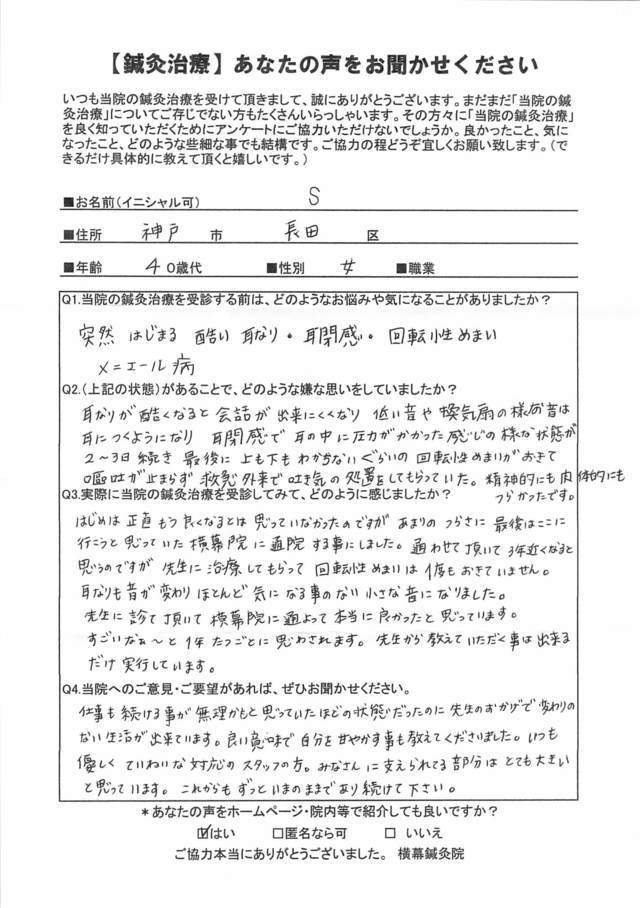 【鍼灸治療】あなたの声をお聞かせください
いつも当院の鍼灸治療を受けて頂きまして、誠にありがとうございます。まだまだ「当院の鍼
灸治療」についてご存じでない方もたくさんいらっしゃいます。その方々に「当院の鍼灸治療」
を良く知っていただくためにアンケートにご協力いただけないでしょうか。良かったこと、気に
なったこと、どのような些細な事でも結構です。ご協力の程どうぞ宜しくお願い致します。(で
きるだけ具体的に教えて頂くと嬉しいです。)
■お名前(イニシャル可) S
■住所 神戸 市 長田 区
■年齢 40歳代 ■性別 女 ■職業
Q1.当院の鍼灸治療を受診する前は、どのようなお悩みや気になることがありましたか?
突然 はじまる 酷い 耳なり・耳閉感・回転性めまい
メニエール病
Q2.(上記の状態)があることで、どのような嫌な思いをしていましたか?
耳なりが酷くなると会話が出来にくくなり 低い音や換気扇の様な音は
耳につくようになり 耳閉感で耳の中に圧力がかかった感じの様な状態が
2~3日続き 最後に上も下もわからないぐらいの回転性めまいがおきて
嘔吐が止まらず 救急外来で吐き気の処置をしてもらっていた。精神的にも肉体的にも
つらかったです。
Q3.実際に当院の鍼灸治療を受診してみて、どのように感じましたか?
はじめは正直もう良くなるとは思っていなかったのですが あまりのつらさに最後はここに
行こうと思っていた横幕院に通院する事にしました。通わせて頂いて3年近くなると
思うのですが 先生に治療してもらって回転性めまいは1度もおきていません。
耳なりも音が変わり ほとんど気になる事のない小さな音になりました。
先生に診て頂いて横幕院に通よって本当に良かったと思っています。
すごいなぁ~と1年たつごとに思わされます。先生から教えていただく事は出来る
だけ実行しています。
Q4.当院へのご意見・ご要望があれば、ぜひお聞かせください。
仕事も続ける事が無理かもと思っていたほどの状態だったのに先生のおかげで変わりの
ない生活が出来ています。良い意味で自分を甘やかす事も教えてくださいました。いつも
優しくていねいな対応のスタッフの方。みなさんに支えられてる部分はとても大きい
と思っています。これからもずっといまのままであり続けて下さい。
*あなたの声をホームページ・院内等で紹介しても良いですか?
☑はい □匿名なら可 □いいえ
ご協力本当にありがとうございました。 横幕鍼灸院